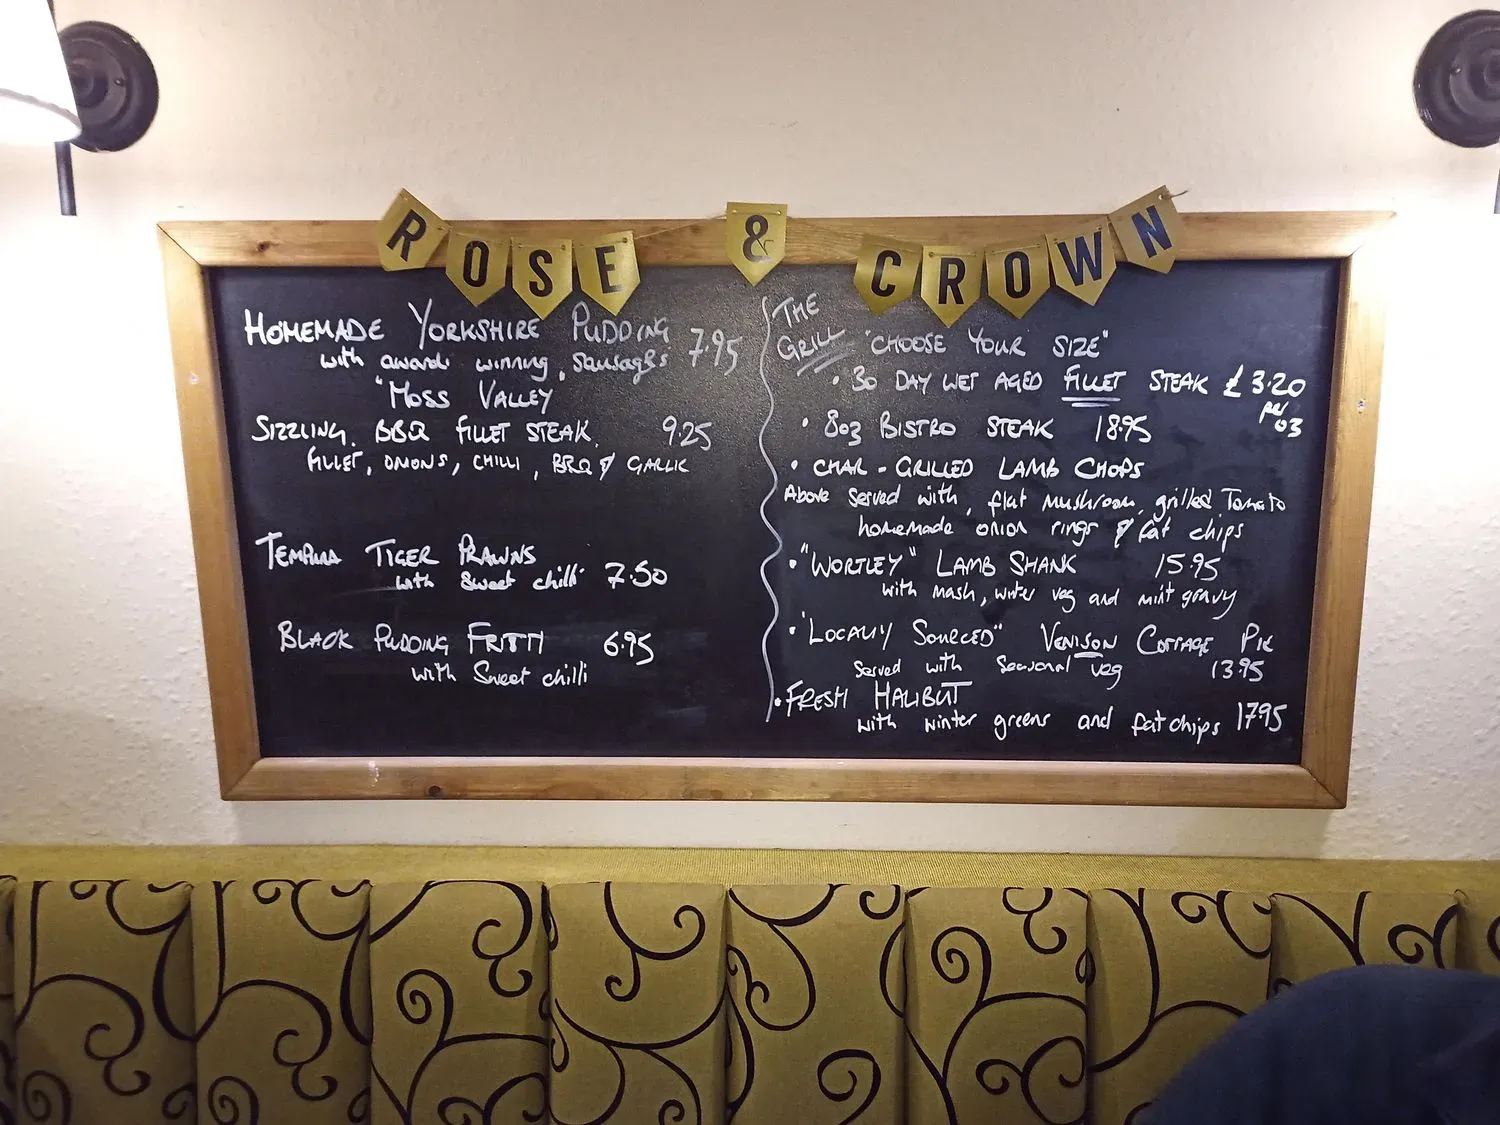 ROSE & CROWN
HOMEMADE YORKSHIRE PUDDING 7.95
with award winning sausages
"MOSS VALLEY
SIZZLING BBQ FILLET STEAK 9.25
FILLET, ONIONS, CHILLI, BBQ & GARLIC
TEMPURA TIGER PRAWNS
with sweet chilli 7.50
BLACK PUDDING FRITTI 6.95
with Sweet chilli
THE
GRILL "CHOOSE YOUR SIZE"
• 30 DAY WET AGED FILLET STEAK £3.20
per
oz
• 8oz BISTRO STEAK 18.95
• CHAR-GRILLED LAMB CHOPS
Above served with, flat mushroom, grilled Tomato
homemade onion rings & fat chips
• "WORTLEY" LAMB SHANK 15.95
with mash, winter veg and mint gravy
• "LOCALLY SOURCED" VENISON COTTAGE PIE
Served with Seasonal veg 13.95
• FRESH HALIBUT
with winter greens and fat chips 17.95